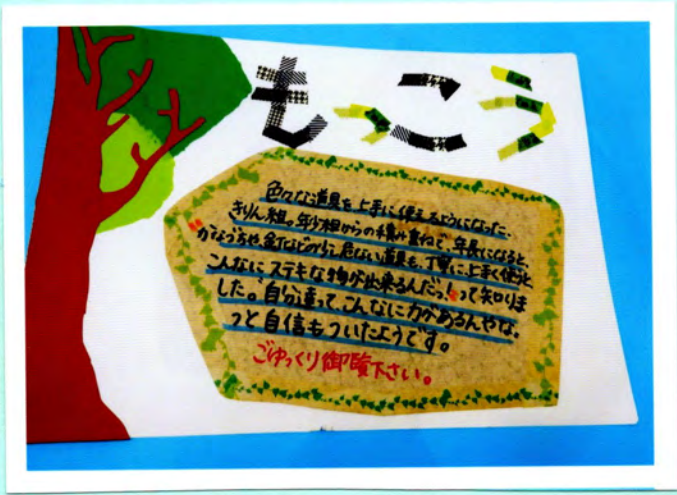 もっこう
色々な道具を上手に使えるようになった、
きりん組。年少組からの積み重ねで、年長になると、
かなづちや、釘などの少し危ない道具も、丁寧に、上手く使うと
こんなにステキな物が出来るんだっ!"って知りま
した。"自分達って、こんなに力があるんやな。
っと自信もついたようです。
ごゆっくり御覧下さい。